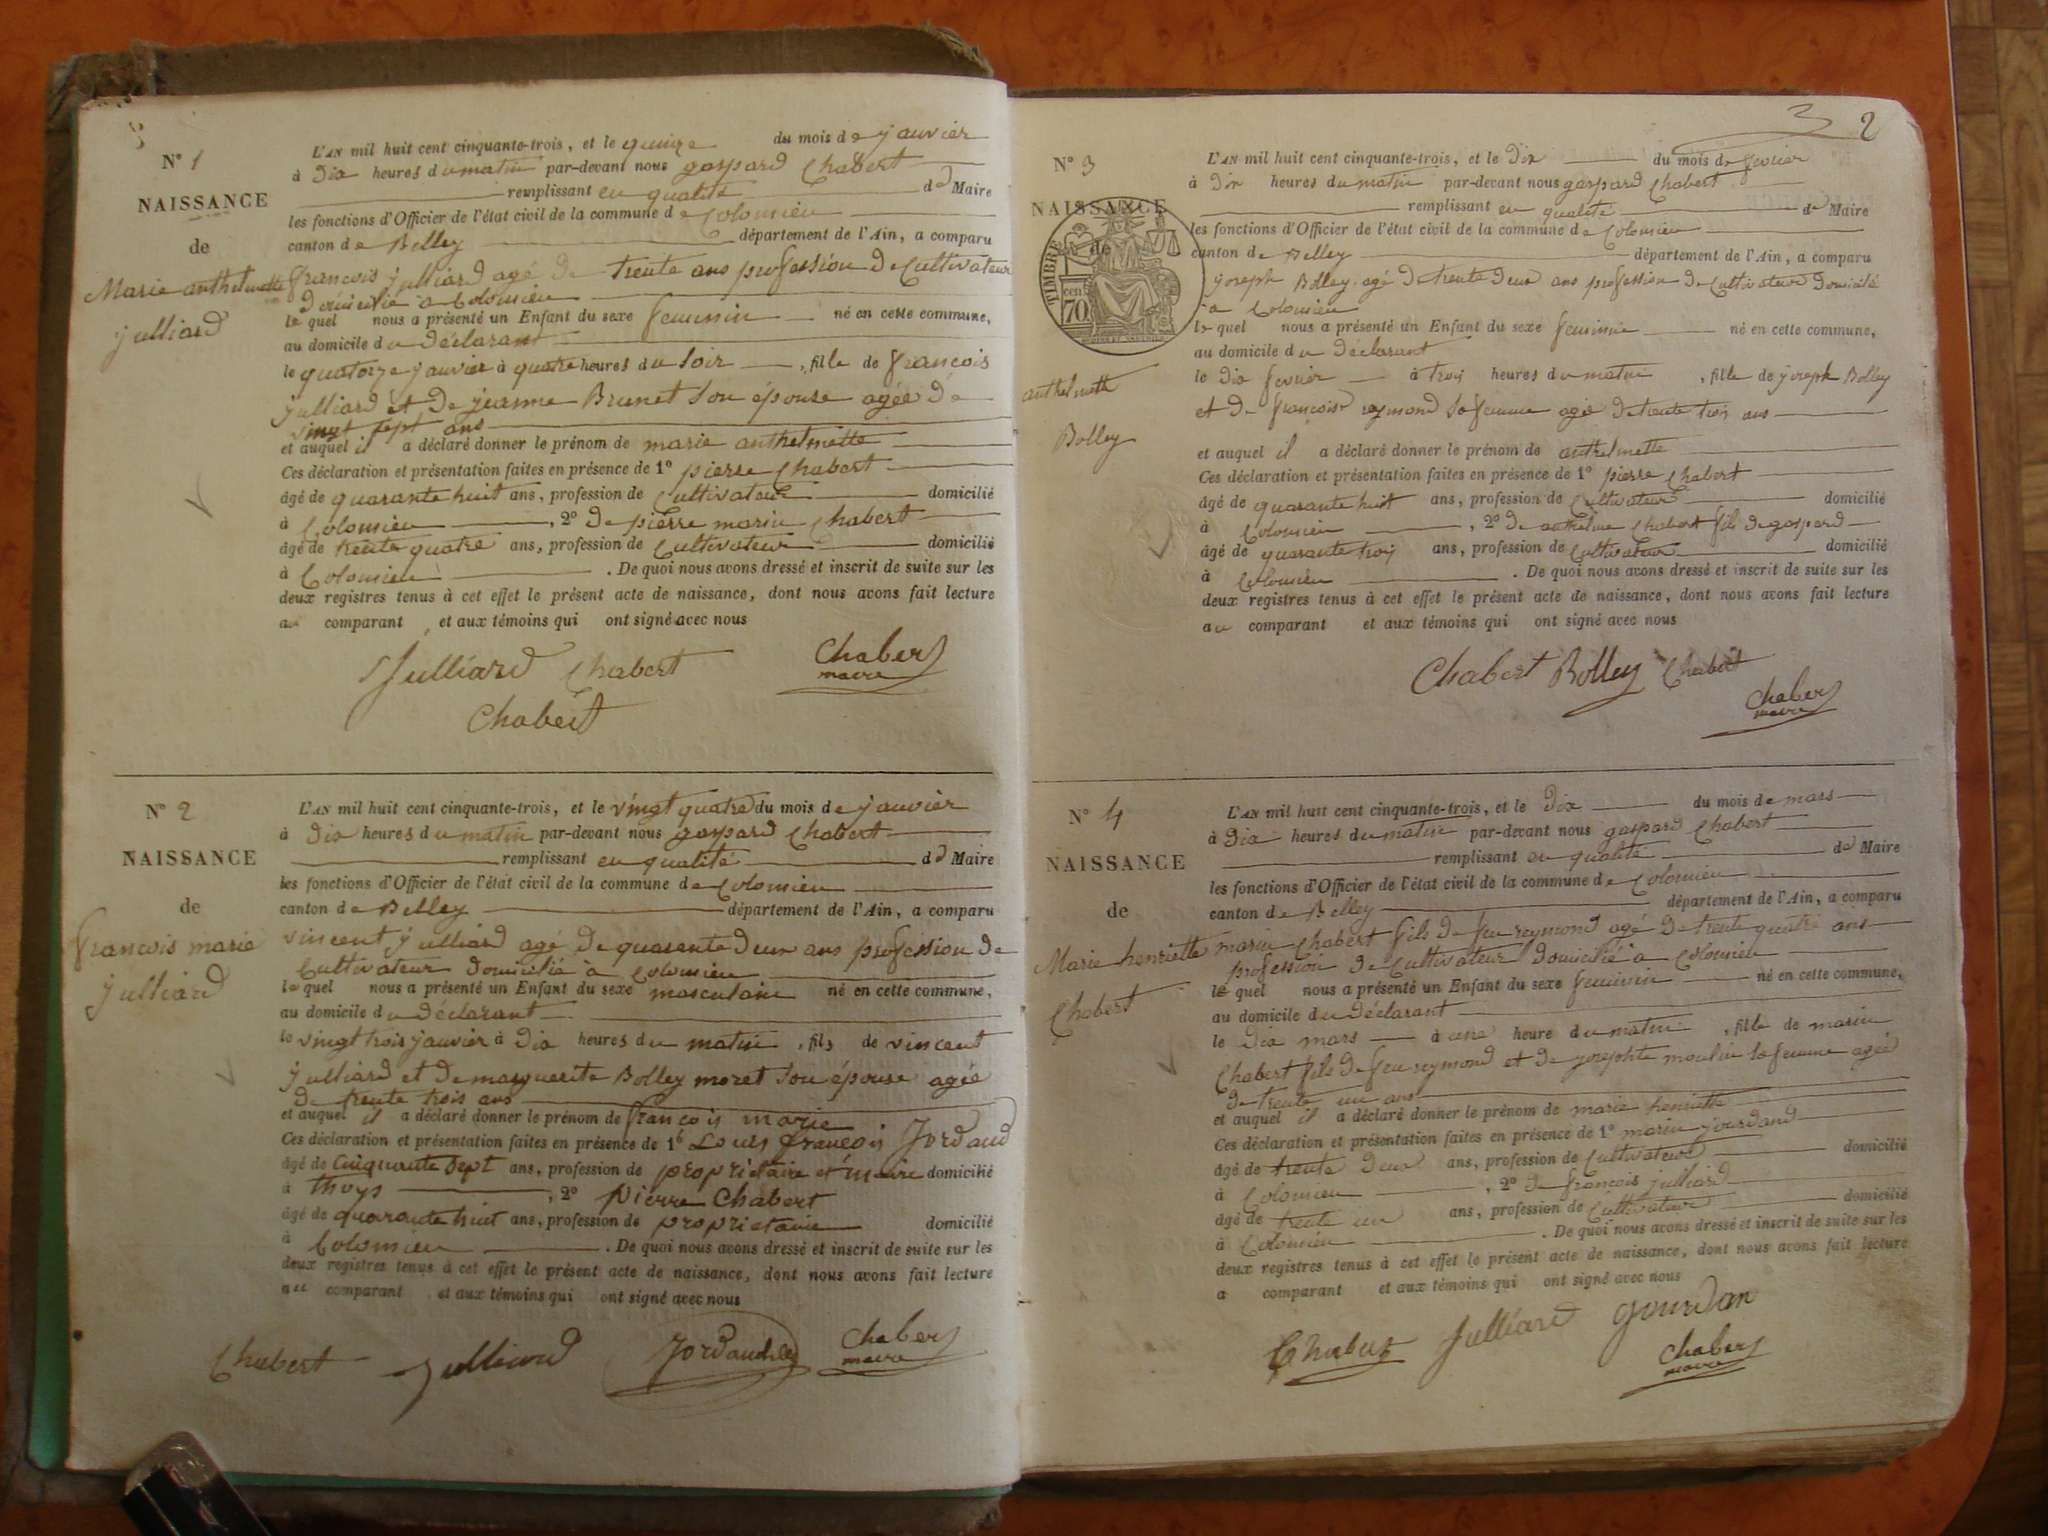 N° 1
NAISSANCE
de
Marie anthelmette
julliard
L'AN mil huit cent cinquante-trois, et le quinze du mois de janvier
à dix heures du matin par-devant nous gaspard Chabert
remplissant en qualité de Maire
les fonctions d'Officier de l'état civil de la commune de Colomieu
canton de Belley département de l'Ain, a comparu
francois julliard agé de trente ans profession de Cultivateur
domicilié à Colomieu
le quel nous a présenté un Enfant du sexe feminin né en cette commune,
au domicile du déclarant
le quatorze janvier à quatre heures du soir, fille de francois
julliard et de jeanne Brunet son épouse agée de
vingt sept ans
et auquel il a déclaré donner le prénom de marie anthelmette
Ces déclaration et présentation faites en présence de 1° pierre Chabert
âgé de quarante huit ans, profession de Cultivateur domicilié
à Colomieu, 2° de pierre marin Chabert
âgé de trente quatre ans, profession de Cultivateur domicilié
à Colomieu. De quoi nous avons dressé et inscrit de suite sur les
deux registres tenus à cet effet le présent acte de naissance, dont nous avons fait lecture
au comparant et aux témoins qui ont signé avec nous
Julliard Chabert Chabert
maire
Chabert
N° 2
NAISSANCE
de
francois marie
julliard
L'AN mil huit cent cinquante-trois, et le vingt quatre du mois de janvier
à dix heures du matin par-devant nous gaspard Chabert
remplissant en qualité de Maire
les fonctions d'Officier de l'état civil de la commune de Colomieu
canton de Belley département de l'Ain, a comparu
vincent julliard agé de quarente deux ans profession de
Cultivateur domicilié à Colomieu
le quel nous a présenté un Enfant du sexe masculain né en cette commune,
au domicile du déclarant
le vingt trois janvier à dix heures du matin, fils de vincent
julliard et de marguerite Bolley moret son épouse agée
de trente trois ans
et auquel il a déclaré donner le prénom de francois marie
Ces déclaration et présentation faites en présence de 1° Louis françois Jordand
âgé de Cinquante sept ans, profession de propriétaire et maire domicilié
à thoys, 2° Pierre Chabert
âgé de quarante huit ans, profession de propriétaire domicilié
à Colomieu. De quoi nous avons dressé et inscrit de suite sur les
deux registres tenus à cet effet le présent acte de naissance, dont nous avons fait lecture
au comparant et aux témoins qui ont signé avec nous
Chabert Julliard Chabert
maire
3 2
N° 3
NAISSANCE
de
TIMBRE
CENT
70
anthelmette
Bolley
L'AN mil huit cent cinquante-trois, et le dix du mois de fevrier
à dix heures du matin par-devant nous gaspard Chabert
remplissant en qualité de Maire
les fonctions d'Officier de l'état civil de la commune de Colomieu
canton de Belley département de l'Ain, a comparu
joseph Bolley agé de trente deux ans profession de Cultivateur domicilié
à Colomieu
le quel nous a présenté un Enfant du sexe feminin né en cette commune,
au domicile du déclarant
le dix fevrier à trois heures du matin, fille de joseph Bolley
et de francoise reymond sa femme agée de trente trois ans
et auquel il a déclaré donner le prénom de anthelmette
Ces déclaration et présentation faites en présence de 1° pierre Chabert
âgé de quarante huit ans, profession de Cultivateur domicilié
à Colomieu, 2° de anthelme Chabert fils de gaspard
âgé de quarante trois ans, profession de Cultivateur domicilié
à Colomieu. De quoi nous avons dressé et inscrit de suite sur les
deux registres tenus à cet effet le présent acte de naissance, dont nous avons fait lecture
au comparant et aux témoins qui ont signé avec nous
Chabert Bolley Chabert
Chabert
maire
N° 4
NAISSANCE
de
Marie henriette
Chabert
L'AN mil huit cent cinquante-trois, et le dix du mois de mars
à dix heures du matin par-devant nous gaspard Chabert
remplissant en qualité de Maire
les fonctions d'Officier de l'état civil de la commune de Colomieu
canton de Belley département de l'Ain, a comparu
marin Chabert fils de feu reymond agé de trente quatre ans
profession de Cultivateur domicilié à Colomieu
le quel nous a présenté un Enfant du sexe feminin né en cette commune,
au domicile du déclarant
le dix mars à une heure du matin, fille de marin
Chabert fils de feu reymond et de josephte moulin sa femme agée
de trente un ans
et auquel il a déclaré donner le prénom de marie henriette
Ces déclaration et présentation faites en présence de 1° marin jourdand
âgé de trente deux ans, profession de Cultivateur domicilié
à Colomieu, 2° de francois julliard
âgé de trente un ans, profession de Cultivateur domicilié
à Colomieu. De quoi nous avons dressé et inscrit de suite sur les
deux registres tenus à cet effet le présent acte de naissance, dont nous avons fait lecture
a comparant et aux témoins qui ont signé avec nous
Chabert Julliard jourdan
Chabert
maire